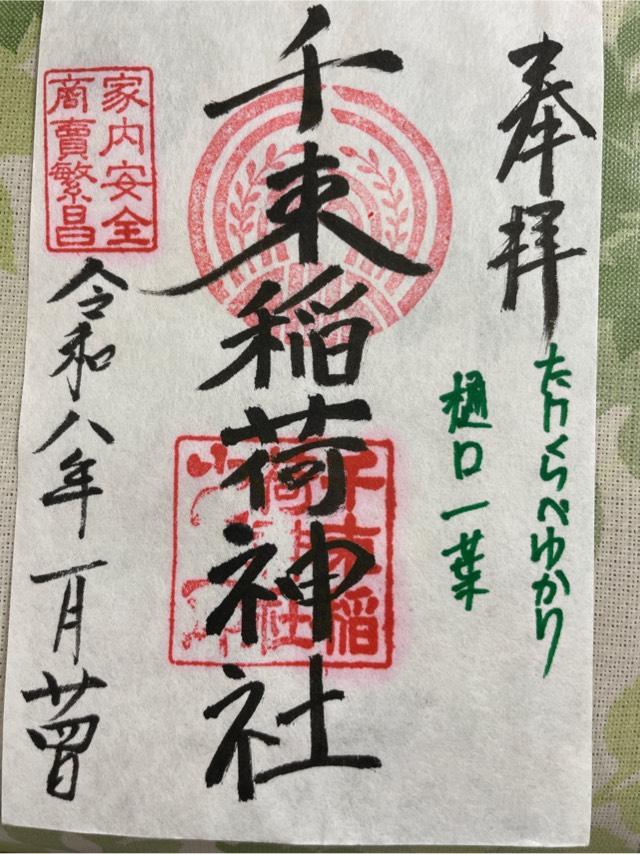 奉拝
たけくらべゆかり
樋口一葉
千束稲荷神社
千束稲
荷神社
家内安全
商賣繁昌
令和八年一月廿四日